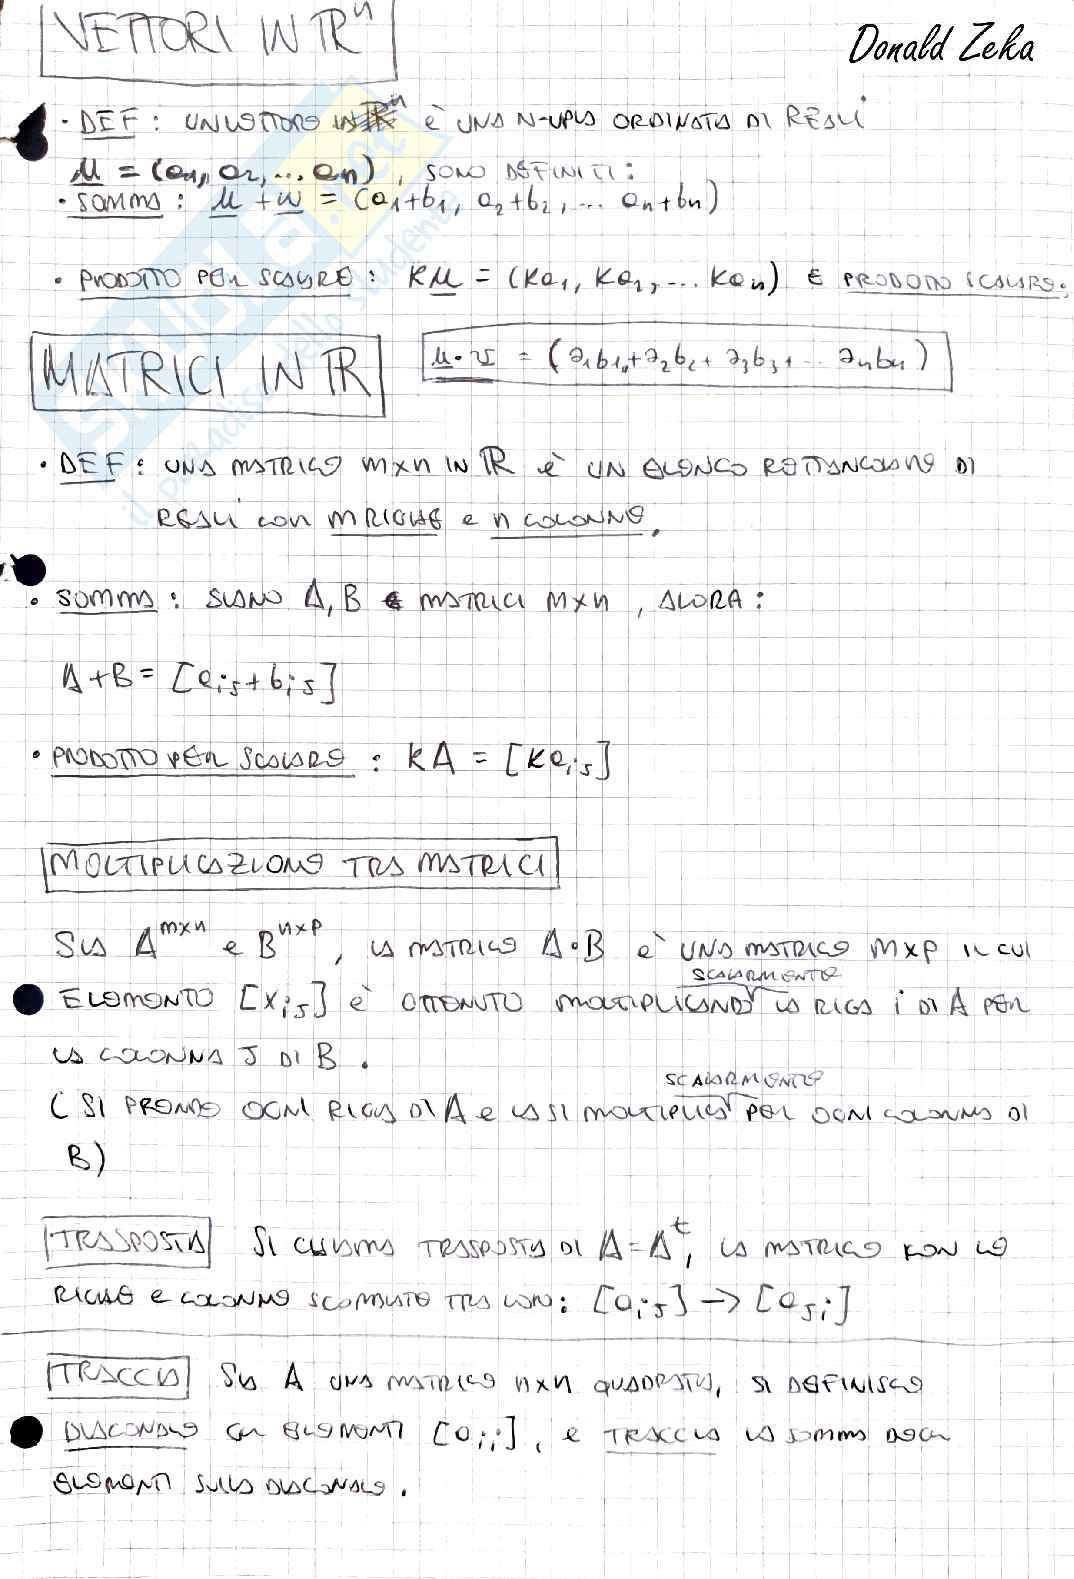 VETTORI IN ℝⁿ
Donald Zeka
• DEF : UN VETTORE IN ℝⁿ È UNA N-UPLA ORDINATA DI REALI
u = (a₁, a₂, ... aₙ), SONO DEFINITI :
• SOMMA : u + w = (a₁+b₁, a₂+b₂, ... aₙ+bₙ)
• PRODOTTO PER SCALARE : Ku = (Ka₁, Ka₂, ... Kaₙ) E PRODOTTO SCALARE:
MATRICI IN ℝ
u · v = (a₁b₁ + a₂b₂ + a₃b₃ + ... aₙbₙ)
• DEF : UNA MATRICE m×n IN ℝ è UN ELENCO RETTANGOLARE DI
REALI con m RIGHE e n COLONNE.
• SOMMA : SIANO A, B MATRICI m×n , ALORA :
A+B = [aij + bij]
• PRODOTTO PER SCALARE : KA = [Kaij]
MOLTIPLICAZIONE TRA MATRICI
SIA Aᵐˣⁿ e Bⁿˣᵖ, LA MATRICE A·B è UNA MATRICE m×p IL CUI
SCALARMENTE
ELEMENTO [xij] è OTTENUTO MOLTIPLICANDO LA RIGA i DI A PER
LA COLONNA J DI B .
SCALARMENTE
( SI PRENDE OGNI RIGA DI A e LA SI MOLTIPLICA PER OGNI COLONNA DI
B )
TRASPOSTA SI CHIAMA TRASPOSTA DI A = Aᵗ, LA MATRICE KON LE
RIGHE e COLONNE SCAMBIATE TRA LORO : [aij] → [aji]
TRACCIA SIA A UNA MATRICE n×n QUADRATA, SI DEFINISCE
DIAGONALE GLI ELEMENTI [aii], e TRACCIA LA SOMMA DEGLI
ELEMENTI SULLA DIAGONALE .
skuola.net
il paradiso dello studente